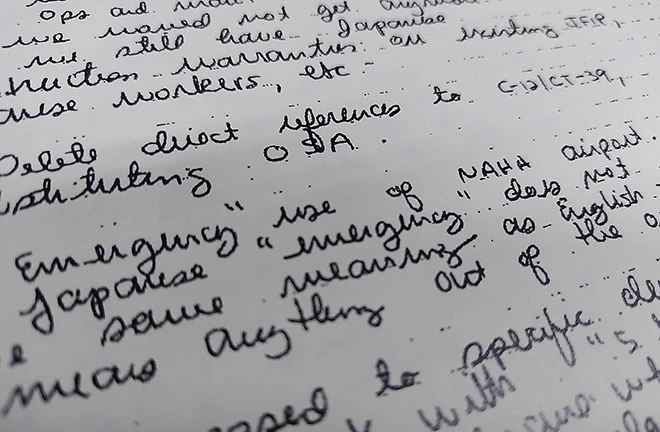 ops and
we would not get
we still have Japanese
warranties on existing JFIP,
workers, etc.
Delete direct references to C-12/CT-39,
OSA.
"Emergency" use of NAHA airport.
Japanese "emergency" does not
same meaning as English
means anything out of the o
to specific
with "s